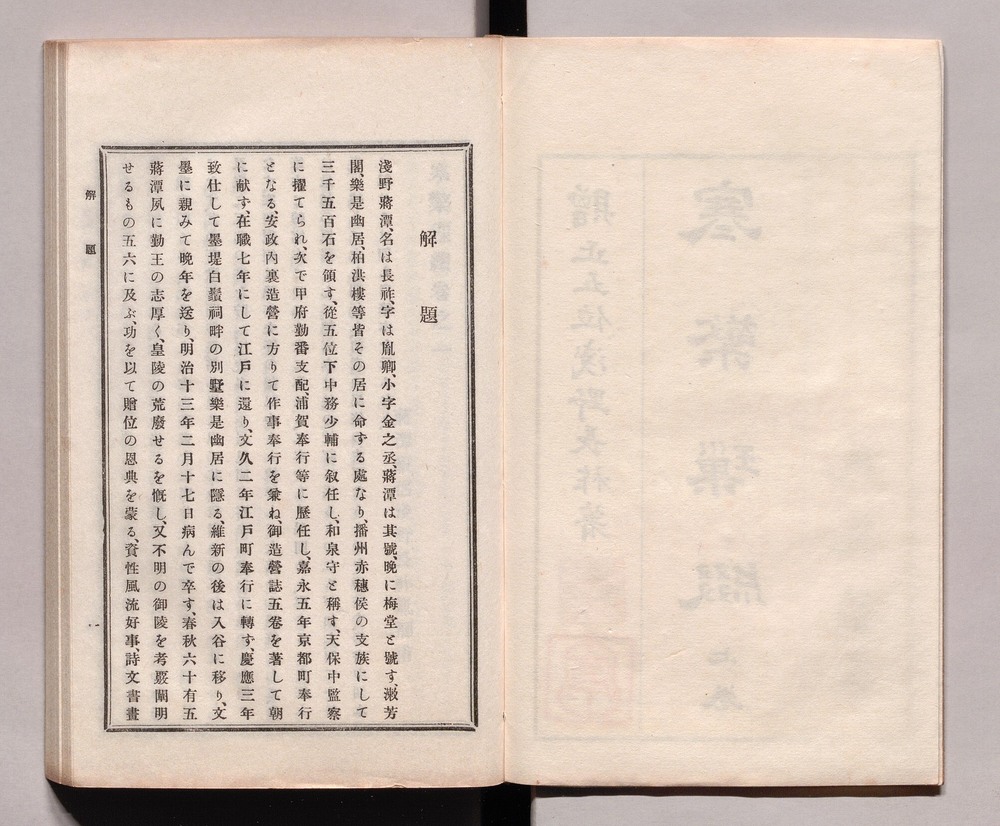 解題
淺野蔣潭、名は長祚、字は胤卿、小字金之丞、蔣潭は其號、晩に梅堂と號す、漱芳
閣、樂是幽居、柏洪樓等皆その居に命する處なり、播州赤穗侯の支族にして
三千五百石を領す、從五位下中務少輔に叙任し、和泉守と稱す、天保中監察
に擢てられ、次で甲府勤番支配、浦賀奉行等に歷任し、嘉永五年京都町奉行
となる、安政內裏造營に方りて作事奉行を兼ね、御造營誌五卷を著して朝
に献す、在職七年にして江戶に還り、文久二年江戶町奉行に轉す、慶應三年
致仕して墨堤白鬚祠畔の別墅樂是幽居に隱る、維新の後は入谷に移り、文
墨に親みて晩年を送り、明治十三年二月十七日病んで卒す、春秋六十有五
蔣潭夙に勤王の志厚く、皇陵の荒廢せるを慨し、又不明の御陵を考覈闡明
せるもの五六に及ぶ、功を以て贈位の恩典を蒙る、資性風流好事、詩文書畫
解題